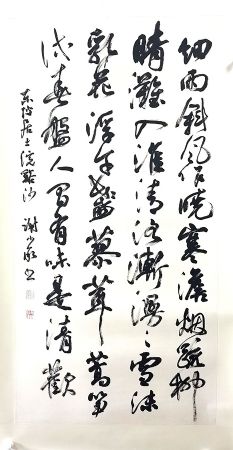 细雨斜风作晓寒澹烟疏柳
晴滩入淮清洛渐漫〻雪沫
乳花浮午盏蓼茸蒿笋
试春盘人间有味是清歡
东坡居士浣谿沙 谢